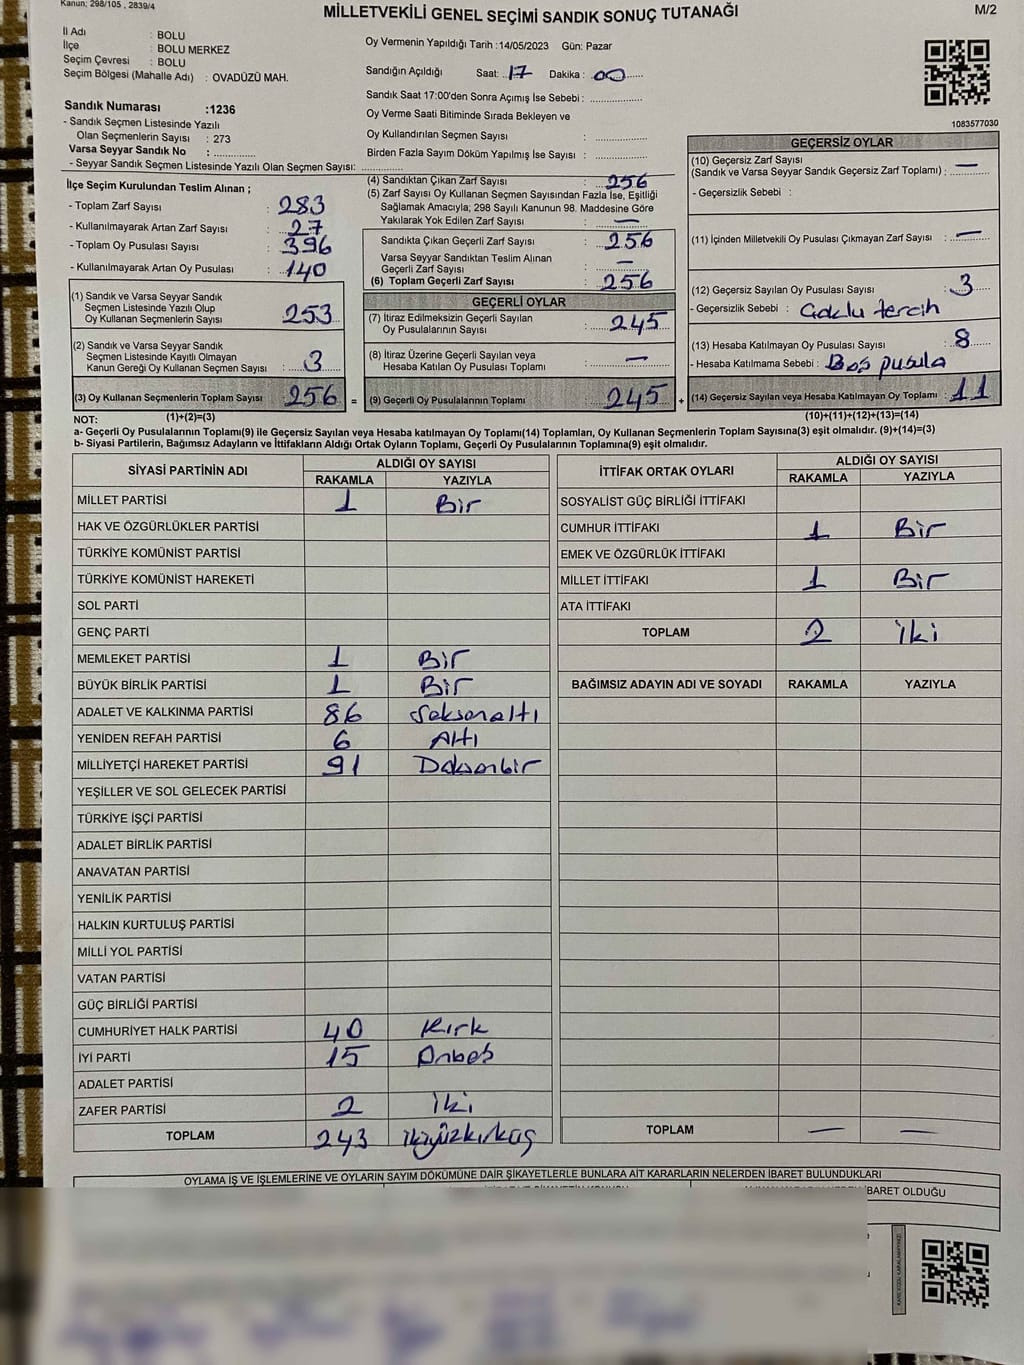 Kanun; 298/105 , 2839/4
MİLLETVEKİLİ GENEL SEÇİMİ SANDIK SONUÇ TUTANAĞI
M/2
İl Adı : BOLU
İlçe : BOLU MERKEZ
Seçim Çevresi : BOLU
Seçim Bölgesi (Mahalle Adı) : OVADÜZÜ MAH.
Sandık Numarası :1236
- Sandık Seçmen Listesinde Yazılı
Olan Seçmenlerin Sayısı : 273
Varsa Seyyar Sandık No : ..............
- Seyyar Sandık Seçmen Listesinde Yazılı Olan Seçmen Sayısı: ..............
Oy Vermenin Yapıldığı Tarih :14/05/2023 Gün: Pazar
Sandığın Açıldığı Saat: 17 Dakika : 00
Sandık Saat 17:00'den Sonra Açımış İse Sebebi : ....................
Oy Verme Saati Bitiminde Sırada Bekleyen ve
Oy Kullandırılan Seçmen Sayısı : ....................
Birden Fazla Sayım Döküm Yapılmış İse Sayısı : ....................
1083577030
İlçe Seçim Kurulundan Teslim Alınan ;
- Toplam Zarf Sayısı : 283
- Kullanılmayarak Artan Zarf Sayısı : 27
- Toplam Oy Pusulası Sayısı : 396
- Kullanılmayarak Artan Oy Pusulası : 140
(1) Sandık ve Varsa Seyyar Sandık
Seçmen Listesinde Yazılı Olup
Oy Kullanan Seçmenlerin Sayısı : 253
(2) Sandık ve Varsa Seyyar Sandık
Seçmen Listesinde Kayıtlı Olmayan
Kanun Gereği Oy Kullanan Seçmen Sayısı : 3
(3) Oy Kullanan Seçmenlerin Toplam Sayısı 256 =
(1)+(2)=(3)
(4) Sandıktan Çıkan Zarf Sayısı : 256
(5) Zarf Sayısı Oy Kullanan Seçmen Sayısından Fazla İse, Eşitliği
Sağlamak Amacıyla; 298 Sayılı Kanunun 98. Maddesine Göre
Yakılarak Yok Edilen Zarf Sayısı : —
Sandıkta Çıkan Geçerli Zarf Sayısı : 256
Varsa Seyyar Sandıktan Teslim Alınan
Geçerli Zarf Sayısı : —
(6) Toplam Geçerli Zarf Sayısı : 256
GEÇERLİ OYLAR
(7) İtiraz Edilmeksizin Geçerli Sayılan
Oy Pusulalarının Sayısı : 245
(8) İtiraz Üzerine Geçerli Sayılan veya
Hesaba Katılan Oy Pusulası Toplamı : —
(9) Geçerli Oy Pusulalarının Toplamı : 245 +
GEÇERSİZ OYLAR
(10) Geçersiz Zarf Sayısı
(Sandık ve Varsa Seyyar Sandık Geçersiz Zarf Toplamı) : —
- Geçersizlik Sebebi :
(11) İçinden Milletvekili Oy Pusulası Çıkmayan Zarf Sayısı : —
(12) Geçersiz Sayılan Oy Pusulası Sayısı : 3
- Geçersizlik Sebebi : Çoklu tercih
(13) Hesaba Katılmayan Oy Pusulası Sayısı : 8
- Hesaba Katılmama Sebebi : Boş pusula
(14) Geçersiz Sayılan veya Hesaba Katılmayan Oy Toplamı : 11
(10)+(11)+(12)+(13)=(14)
NOT:
a- Geçerli Oy Pusulalarının Toplamı(9) ile Geçersiz Sayılan veya Hesaba katılmayan Oy Toplamı(14) Toplamları, Oy Kullanan Seçmenlerin Toplam Sayısına(3) eşit olmalıdır. (9)+(14)=(3)
b- Siyasi Partilerin, Bağımsız Adayların ve İttifakların Aldığı Ortak Oyların Toplamı, Geçerli Oy Pusulalarının Toplamına(9) eşit olmalıdır.
SİYASİ PARTİNİN ADI ALDIĞI OY SAYISI
RAKAMLA YAZIYLA
MİLLET PARTİSİ 1 Bir
HAK VE ÖZGÜRLÜKLER PARTİSİ
TÜRKİYE KOMÜNİST PARTİSİ
TÜRKİYE KOMÜNİST HAREKETİ
SOL PARTİ
GENÇ PARTİ
MEMLEKET PARTİSİ 1 Bir
BÜYÜK BİRLİK PARTİSİ 1 Bir
ADALET VE KALKINMA PARTİSİ 86 Seksenaltı
YENİDEN REFAH PARTİSİ 6 Altı
MİLLİYETÇİ HAREKET PARTİSİ 91 Doksanbir
YEŞİLLER VE SOL GELECEK PARTİSİ
TÜRKİYE İŞÇİ PARTİSİ
ADALET BİRLİK PARTİSİ
ANAVATAN PARTİSİ
YENİLİK PARTİSİ
HALKIN KURTULUŞ PARTİSİ
MİLLİ YOL PARTİSİ
VATAN PARTİSİ
GÜÇ BİRLİĞİ PARTİSİ
CUMHURİYET HALK PARTİSİ 40 Kırk
İYİ PARTİ 15 Onbeş
ADALET PARTİSİ
ZAFER PARTİSİ 2 İki
TOPLAM 243 ikiyüzkırküç
İTTİFAK ORTAK OYLARI ALDIĞI OY SAYISI
RAKAMLA YAZIYLA
SOSYALİST GÜÇ BİRLİĞİ İTTİFAKI
CUMHUR İTTİFAKI 1 Bir
EMEK VE ÖZGÜRLÜK İTTİFAKI
MİLLET İTTİFAKI 1 Bir
ATA İTTİFAKI
TOPLAM 2 İki
BAĞIMSIZ ADAYIN ADI VE SOYADI RAKAMLA YAZIYLA
TOPLAM — —
OYLAMA İŞ VE İŞLEMLERİNE VE OYLARIN SAYIM DÖKÜMÜNE DAİR ŞİKAYETLERLE BUNLARA AİT KARARLARIN NELERDEN İBARET BULUNDUKLARI
İBARET OLDUĞU